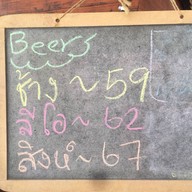 Beers
ช้าง ~ 59
ลีโอ ~ 62
สิงห์ ~ 67